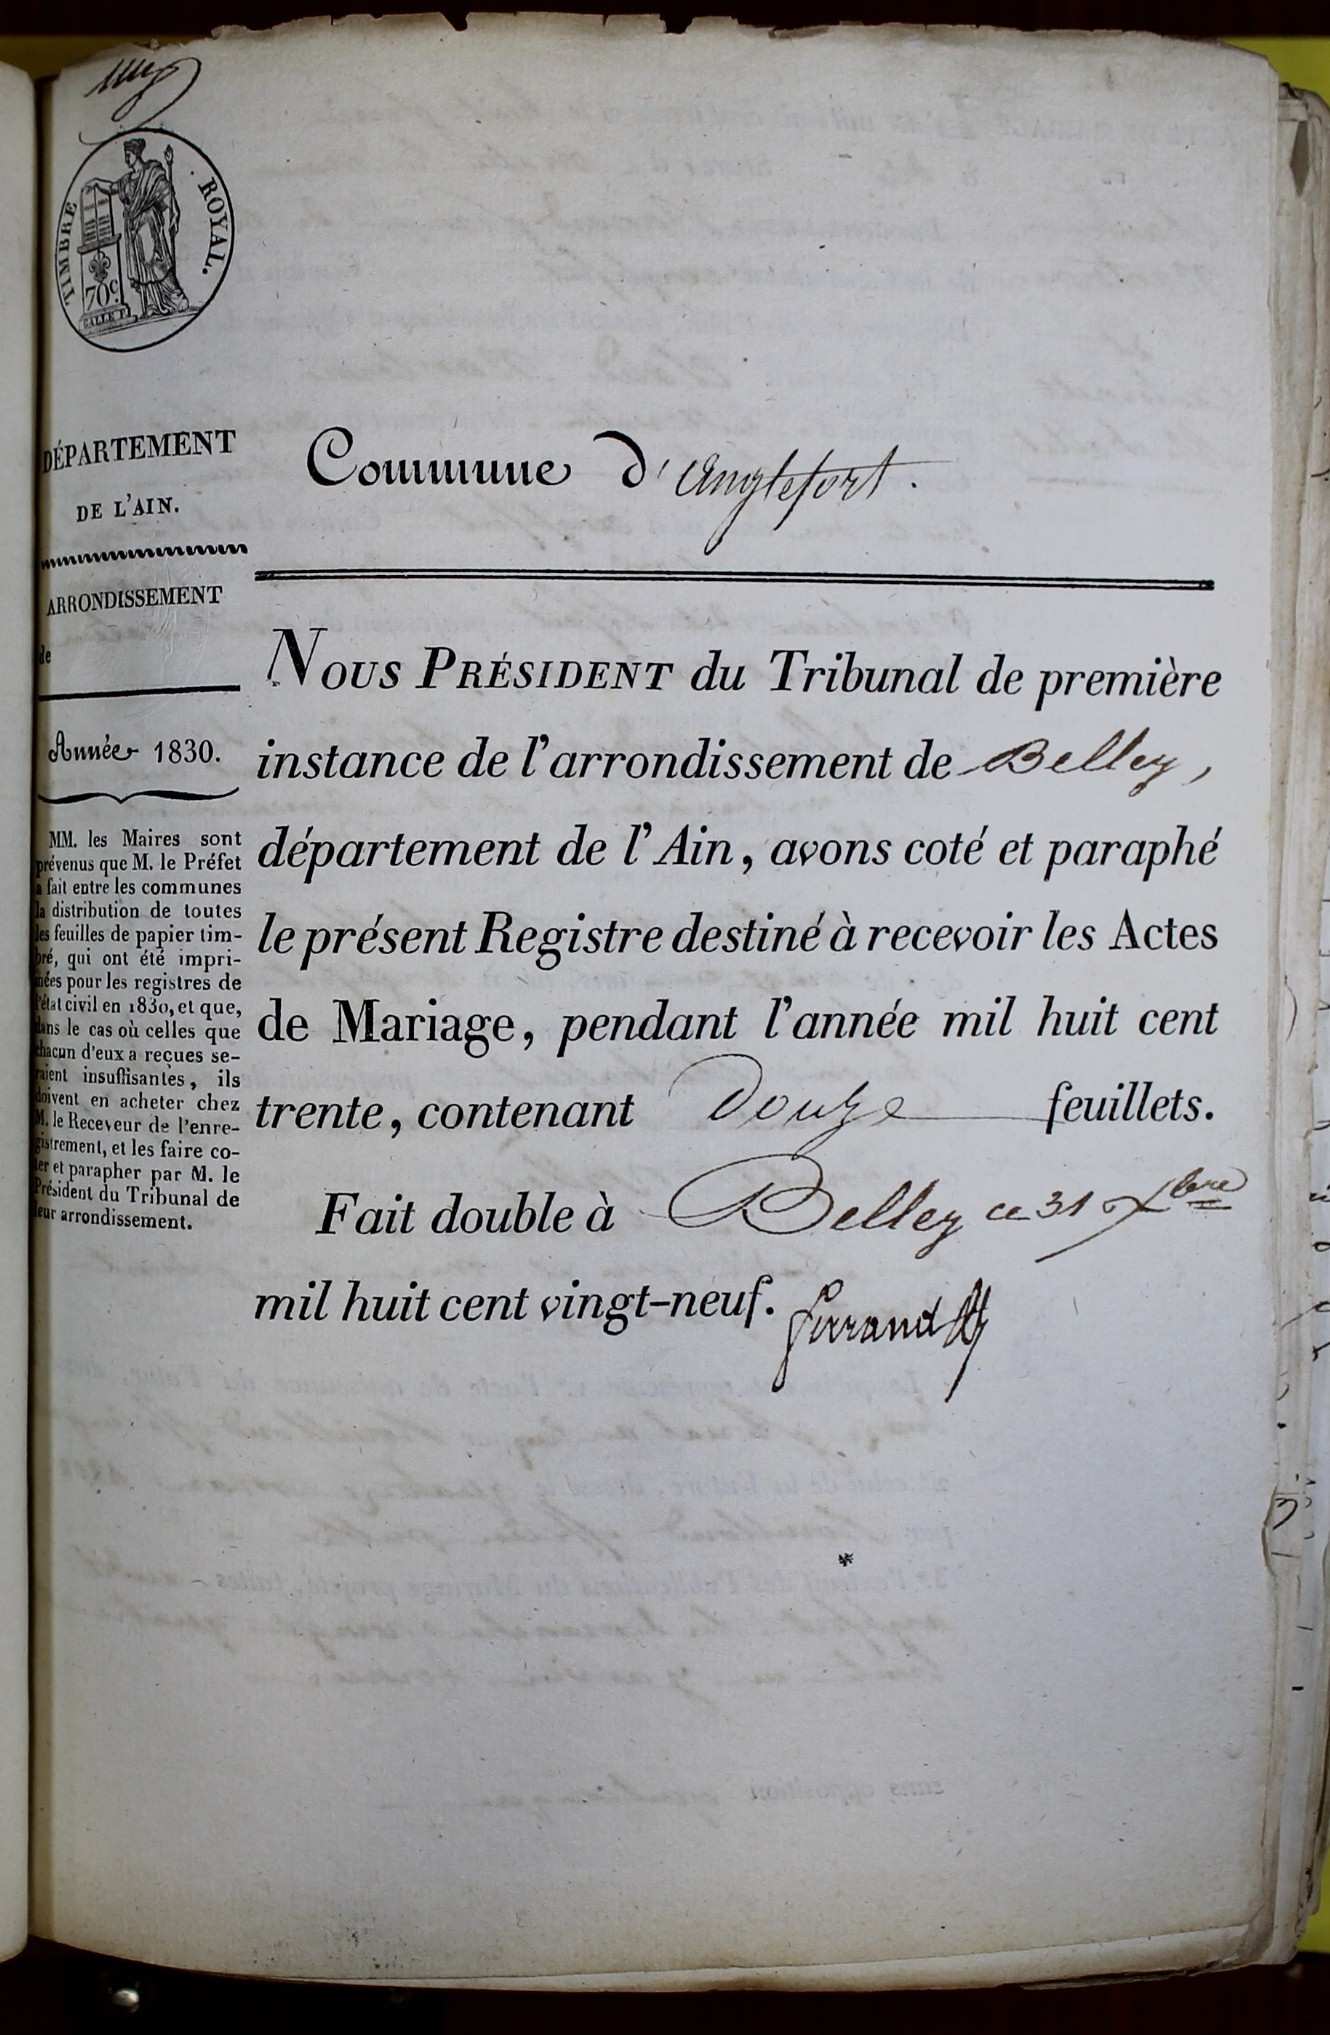 TIMBRE ROYAL.
70 c.
DÉPARTEMENT
DE L'AIN.
ARRONDISSEMENT
de
Année 1830.
MM. les Maires sont
prévenus que M. le Préfet
a fait entre les communes
la distribution de toutes
les feuilles de papier tim-
bré, qui ont été impri-
mées pour les registres de
l'état civil en 1830, et que,
dans le cas où celles que
chacun d'eux a reçues se-
raient insuffisantes, ils
doivent en acheter chez
M. le Receveur de l'enre-
gistrement, et les faire co-
ter et parapher par M. le
Président du Tribunal de
leur arrondissement.
Commune d'Anglefort.
NOUS PRÉSIDENT du Tribunal de première
instance de l'arrondissement de Belley,
département de l'Ain, avons coté et paraphé
le présent Registre destiné à recevoir les Actes
de Mariage, pendant l'année mil huit cent
trente, contenant Douze feuillets.
Fait double à Belley ce 31 Xbre
mil huit cent vingt-neuf.